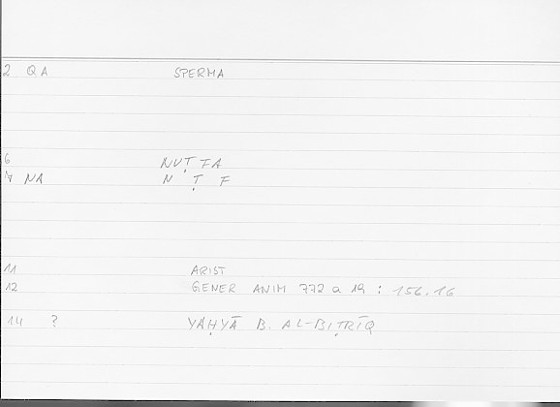 2 QA SPERMA
6 NUṬFA
NA N Ṭ F
11 ARIST
12 GENER ANIM 772 a 19 : 156.16
14 ? YAḤYĀ B. AL-BIṬRĪQ